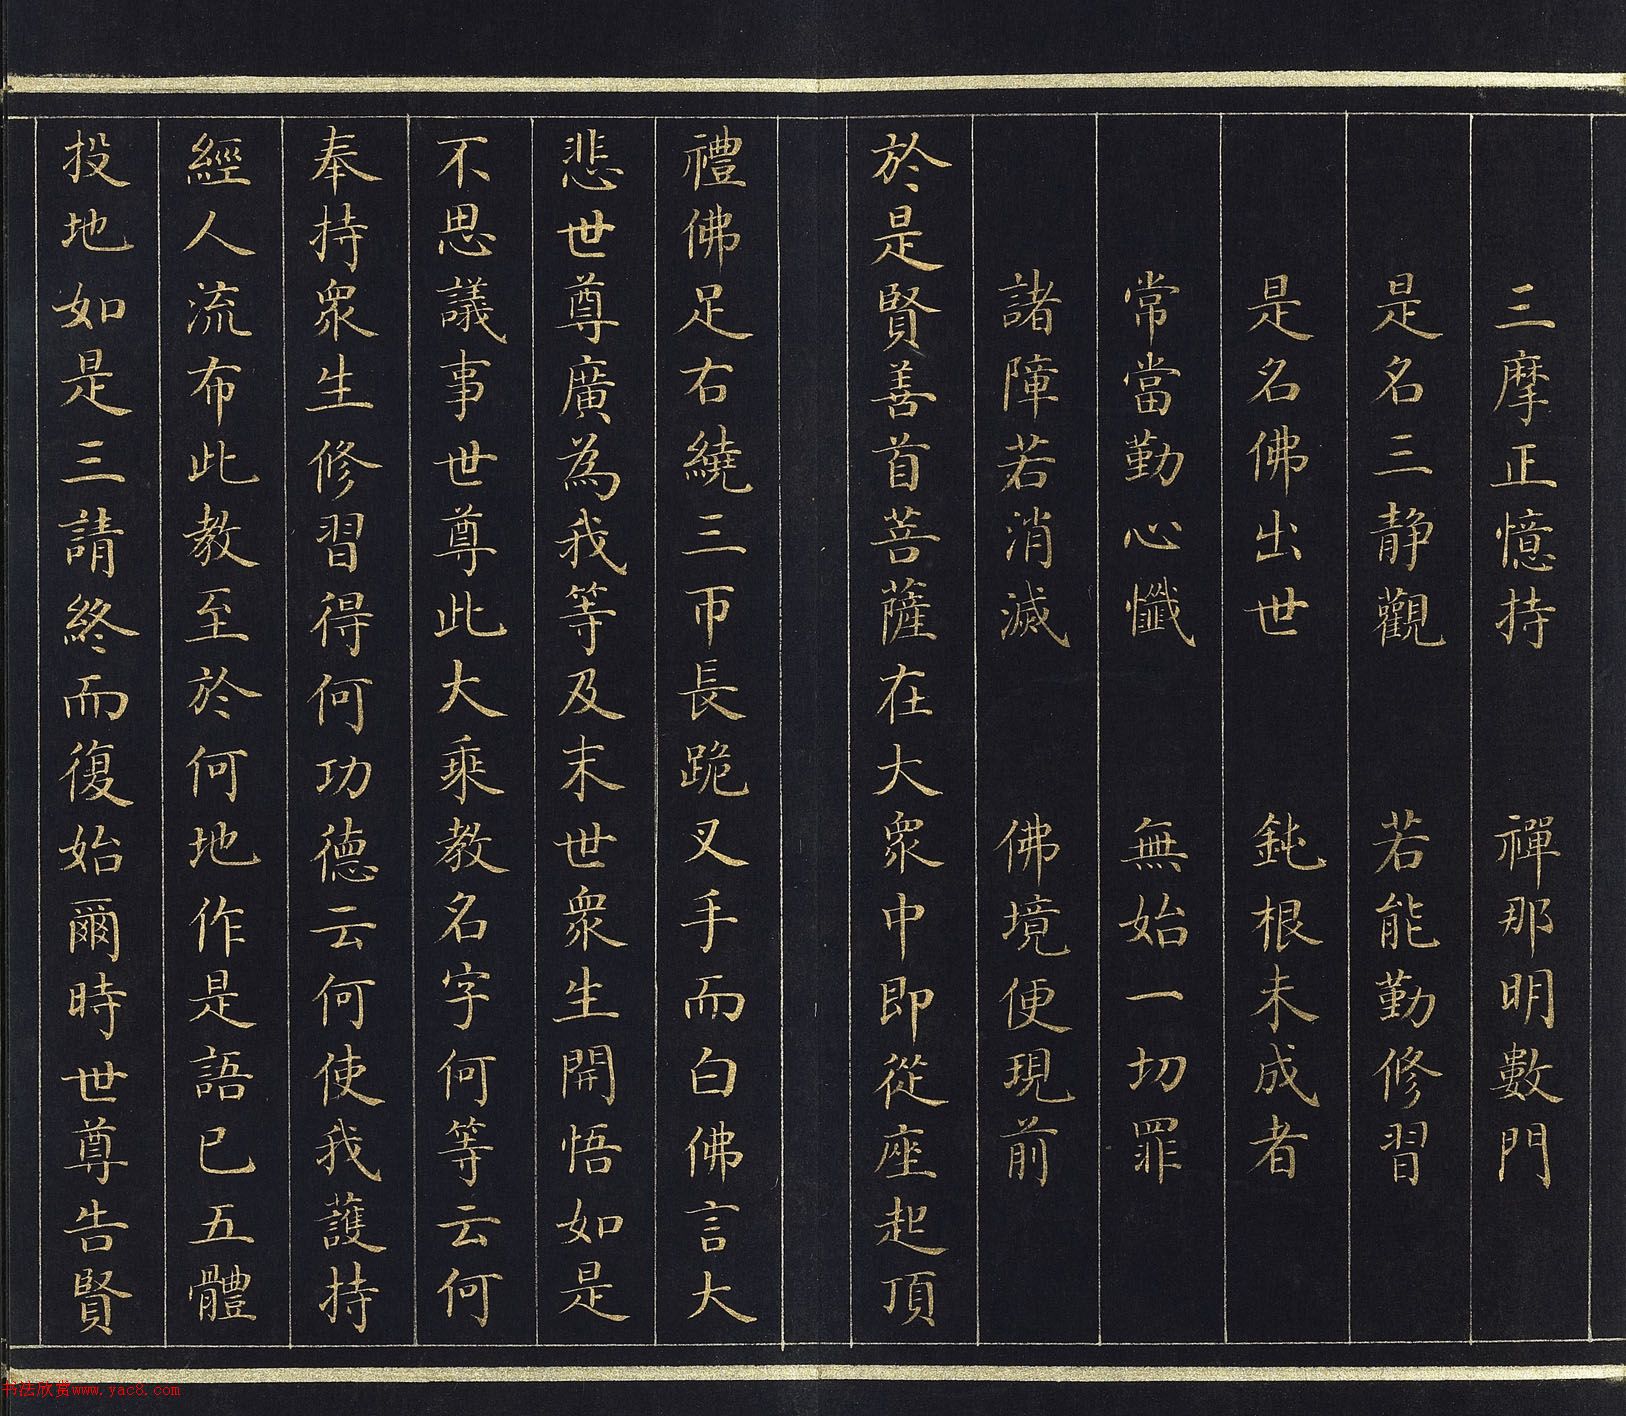 三摩正憶持　禪那明數門
是名三静觀　若能勤修習
是名佛出世　鈍根未成者
常當勤心懺　無始一切罪
諸障若消滅　佛境便現前
於是賢善首菩薩在大眾中即從座起頂
禮佛足右繞三帀長跪叉手而白佛言大
悲世尊廣為我等及末世眾生開悟如是
不思議事世尊此大乘教名字何等云何
奉持眾生修習得何功德云何使我護持
經人流布此教至於何地作是語已五體
投地如是三請終而復始爾時世尊告賢
书法欣赏www.yac8.com